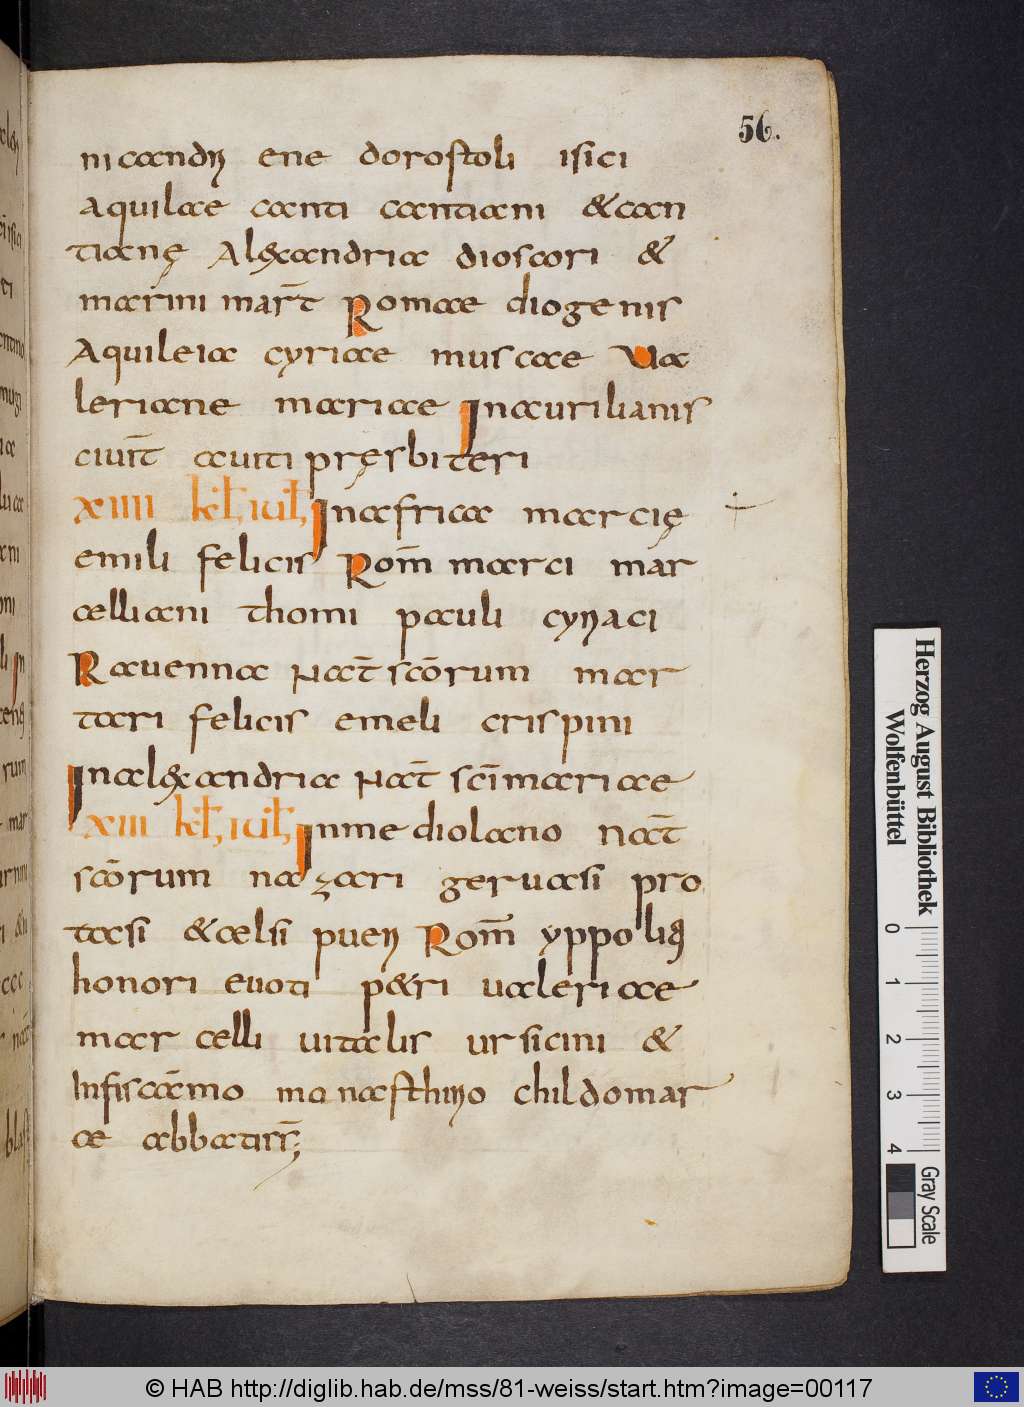 56.
nicandri ene dorostoli isici
aquilae canti cantiani & can
tianę Alexandria dioscori &
marini mar̄t Romae diogenis
Aquileia cyriae muscae Va
leriane mariae Inaurilianis
ciuit̄ auiti pręsbiteri
XIIII kł, iuł, Inafrica marcię
emili felicis Rom̄ marci mar
celliani thomi pauli cyriaci
Rauenna Nat̄ sc̄orum mar
tari felicis emeli crispini
Inalexandria Nat̄ sc̄i mariae
XIII kł, iuł, Inmediolano Nat̄
sc̄orum nazari geruasi pro
tasi & celsi pueri Rom̄ yppoliti
honori euoti p&ri ualeriae
marcelli uitalis ursicini &
Infiscam̄o monasthirio childomar
ae abbatir̄r;
Herzog August Bibliothek
Wolfenbüttel
0 1 2 3 4
Gray Scale
© HAB http://diglib.hab.de/mss/81-weiss/start.htm?image=00117